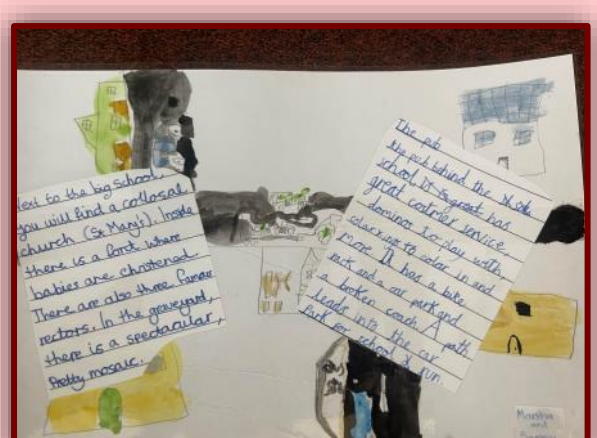 Next to the big school,
you will find a collosal
church (St Mary's). Inside
there is a font where
babies are christened.
There are also three famous
rectors. In the graveyard,
there is a spectacular,
Pretty mosaic.
The pub
the pub behind the
school. It is great has
great costmer service,
dominos to play with,
colouring to color in and
more. It has a bike
rack and a car park and
a broken coach. A path
leads into the car
park for school run.
and